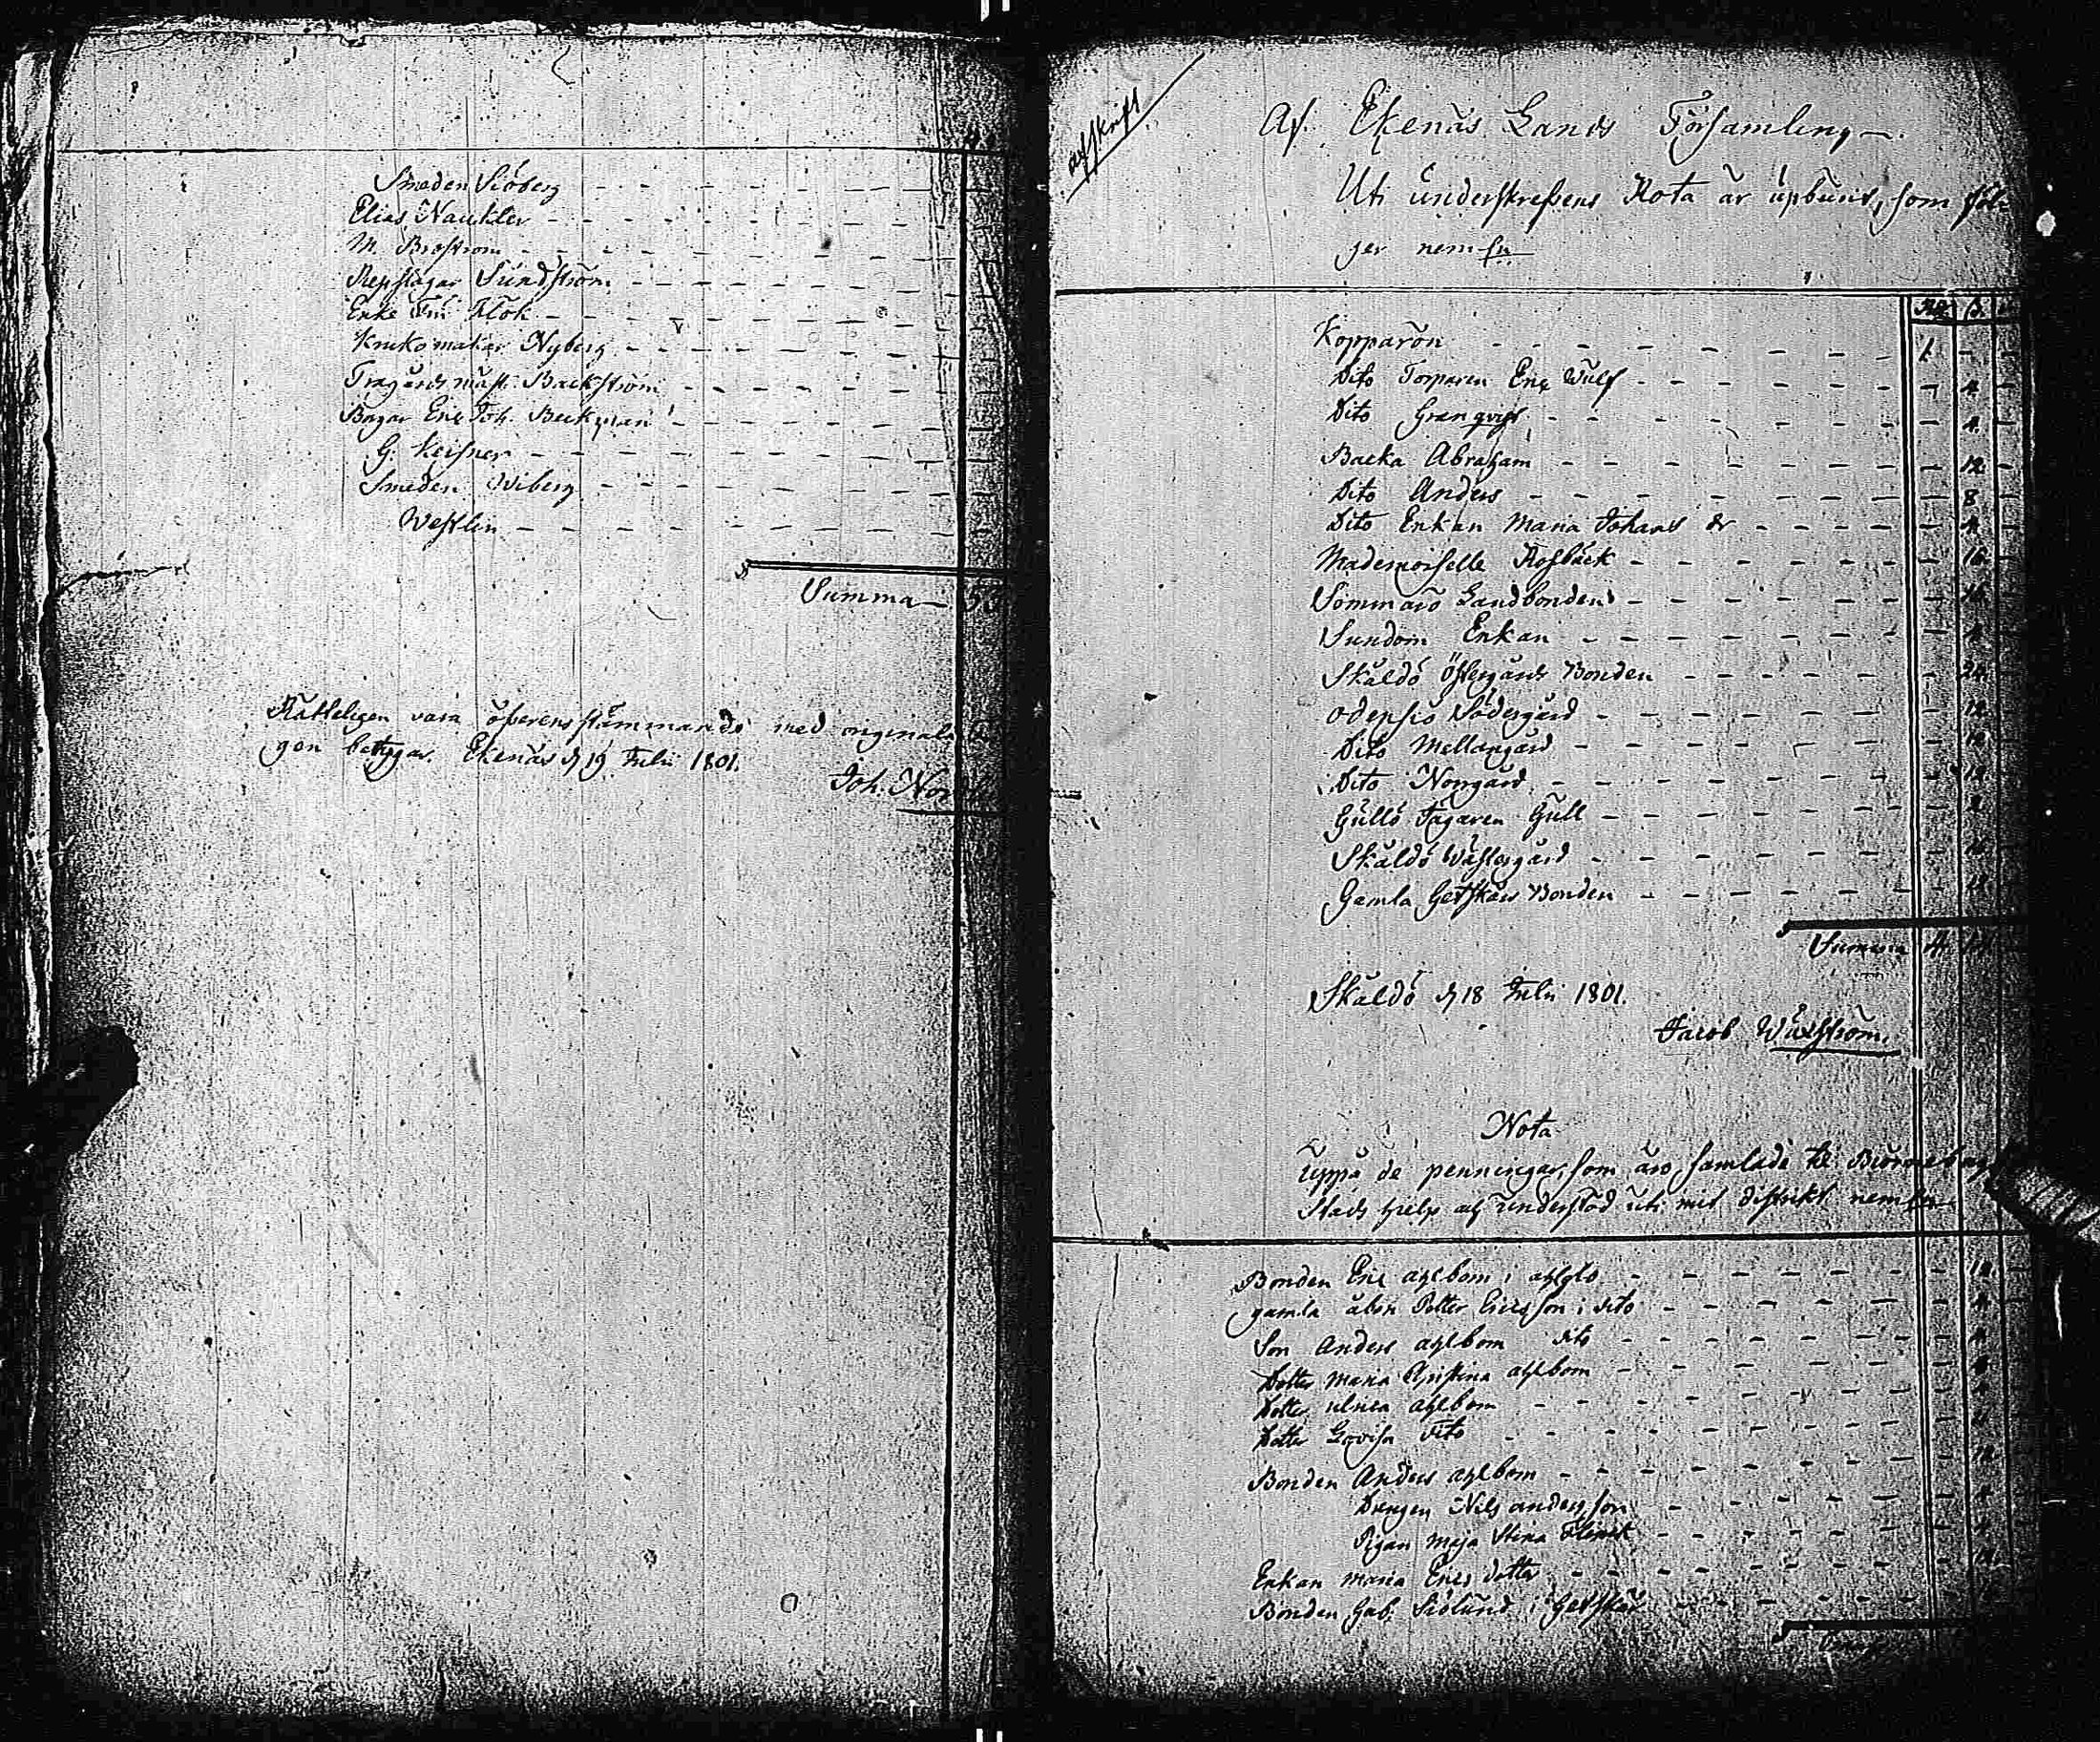 Smeden Siöberg
Elias Nauckler
M. Broström
Repslagar Sundström
Enke Fru Flök
Krukomakar Nyberg
Trägårds mäst. Backström
Bagar Eric Joh. Beckman
G. Keisner
Smeden Wiberg
Westlin
Summa
Rätteligen vara öfverensstämmande med originala
gen betygar. Ekenäs d 19 Julii 1801.
Joh.
afskrift
Af Ekenäs Lands Församling
Uti underskrefvens Rota är upburit, som föl-
jer neml:n
Rdr ß.
Kopparön 1
Dito Torparen Eric Wulf 4
Dito Granqvist 4
Backa Abraham 12
Dito Anders 8
Dito Enkan Maria Johans dr 4
Mademoiselle Rosbäck 16
Sommarö Landbonden 16
Sundom Enkan 4
Skåldö Östergårds Bonden 24
Odensiö Södergård 12
Dito Mellangård 12
Dito Norrgård 12
Gullö Jägaren Gull
Skåldö Wästergård
Gamla Getskärs Bonden 12
Summa 4
Skåldö d 18 Julii 1801.
Jacob Wäxström.
Nota
Uppå de penningar, som äro samlade til Biörneborgs
Stads hjelp och understöd uti mit distrikt neml:n
Bonden Eric ahlbom i
gamla åbon Petter Ericsson i dito
Son Anders ahlbom dito
Dotter Maria Christina ahlbom
Dotter Ulrica ahlbom
Dotter Lovisa Dito
Bonden Anders ahlbom
Drengen Nils andersson
Pigan Maja Stina
Enkan Maria Erics dotter
Bonden Gab. Siölund i Getskär